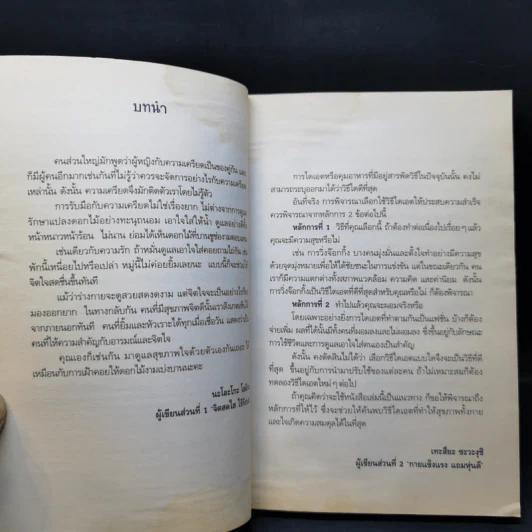 บทนำ
คนส่วนใหญ่มักพูดว่าผู้หญิงกับความเครียดเป็นของคู่กัน และ
ก็มีผู้คนอีกมากเช่นกันที่ไม่รู้ว่าควรจะจัดการอย่างไรกับความเครียด
เหล่านั้น ดังนั้น ความเครียดจึงมักติดตัวเราโดยไม่รู้ตัว
การรับมือกับความเครียดไม่ใช่เรื่องยาก ไม่ต่างจากการดูแล
รักษาแปลงดอกไม้อย่างทะนุถนอม เอาใจใส่ให้น้ำ ดูแลอย่างดีทั้ง
หน้าหนาวหน้าร้อน ไม่นาน ย่อมได้เห็นดอกไม้ที่บานชูช่องามตอบแทน
เช่นเดียวกับความรัก ถ้าหมั่นดูแลเอาใจใส่คอยถามไถ่กัน เช่น
พักนี้เหนื่อยไปหรือเปล่า หมู่นี้ไม่ค่อยยิ้มเลยนะ แบบนี้ก็จะช่วยให้
จิตใจสดชื่นขึ้นทันที
แม้ว่าร่างกายจะดูสวยสดงดงาม แต่จิตใจจะเป็นอย่างไรก็
มองออกยาก ในทางกลับกัน คนที่มีสุขภาพจิตดีนั้นเราสังเกตเห็นได้
จากภายนอกทันที คนที่ยิ้มและหัวเราะได้ทุกเมื่อเชื่อวัน แสดงว่าเป็น
คนที่ให้ความสำคัญกับอารมณ์และจิตใจ
คุณเองก็เช่นกัน มาดูแลสุขภาพใจด้วยตัวเองกันเถอะ
เหมือนกับการเฝ้าคอยให้ดอกไม้งามเบ่งบานนะคะ
นะโอะโกะ
ผู้เขียนส่วนที่ 1 "จิตสดใส
การไดเอตหรือคุมอาหารที่มีอยู่สารพัดวิธีในปัจจุบันนั้น คงไม่
สามารถระบุออกมาได้ว่าวิธีใดดีที่สุด
อันที่จริง การพิจารณาเลือกใช้วิธีไดเอตให้ประสบความสำเร็จ
ควรพิจารณาจากหลักการ 2 ข้อต่อไปนี้
หลักการที่ 1 วิธีที่คุณเลือกนี้ ถ้าต้องทำต่อเนื่องไปเรื่อยๆ แล้ว
คุณจะมีความสุขหรือไม่
เช่น การวิ่งจ๊อกกิ้ง บางคนมุ่งมั่นและตั้งใจทำอย่างมีความสุข
ด้วยจุดมุ่งหมายเพื่อให้ได้ชัยชนะในการแข่งขัน แต่ในขณะเดียวกัน คน
เราก็มีความแตกต่างกันทั้งสภาพแวดล้อม ความคิด และค่านิยม ดังนั้น
การวิ่งจ๊อกกิ้งจะเป็นวิธีไดเอตที่ดีที่สุดสำหรับคุณหรือไม่ ก็ต้องพิจารณา
หลักการที่ 2 ทำไปแล้วคุณจะผอมจริงหรือ
โดยเฉพาะอย่างยิ่งการไดเอตที่ทำตามกันเป็นแฟชั่น บ้างก็ต้อง
จ่ายเพิ่ม ผลที่ได้นั้นมีทั้งคนที่ผอมลงและไม่ผอมลง ซึ่งขึ้นอยู่กับลักษณะ
การใช้ชีวิตและการดูแลเอาใจใส่ตนเองเป็นสำคัญ
ดังนั้น คงตัดสินไม่ได้ว่า เลือกวิธีไดเอตแบบใดจึงจะเป็นวิธีที่ดี
ที่สุด ขึ้นอยู่กับการนำมาปรับใช้ของแต่ละคน ถ้าไม่เหมาะสมก็ต้อง
ทดลองวิธีไดเอตใหม่ๆ ต่อไป
ถ้าคุณคิดว่าจะใช้หนังสือเล่มนี้เป็นแนวทาง ก็ขอให้พิจารณาถึง
หลักการที่ให้ไว้ ซึ่งจะช่วยให้ค้นพบวิธีไดเอตที่ทำให้สุขภาพทั้งกาย
และใจเกิดความสมดุลได้ในที่สุด
เทะสึยะ ซะวะงุชิ
ผู้เขียนส่วนที่ 2 "กายแข็งแรง แถมหุ่นดี"